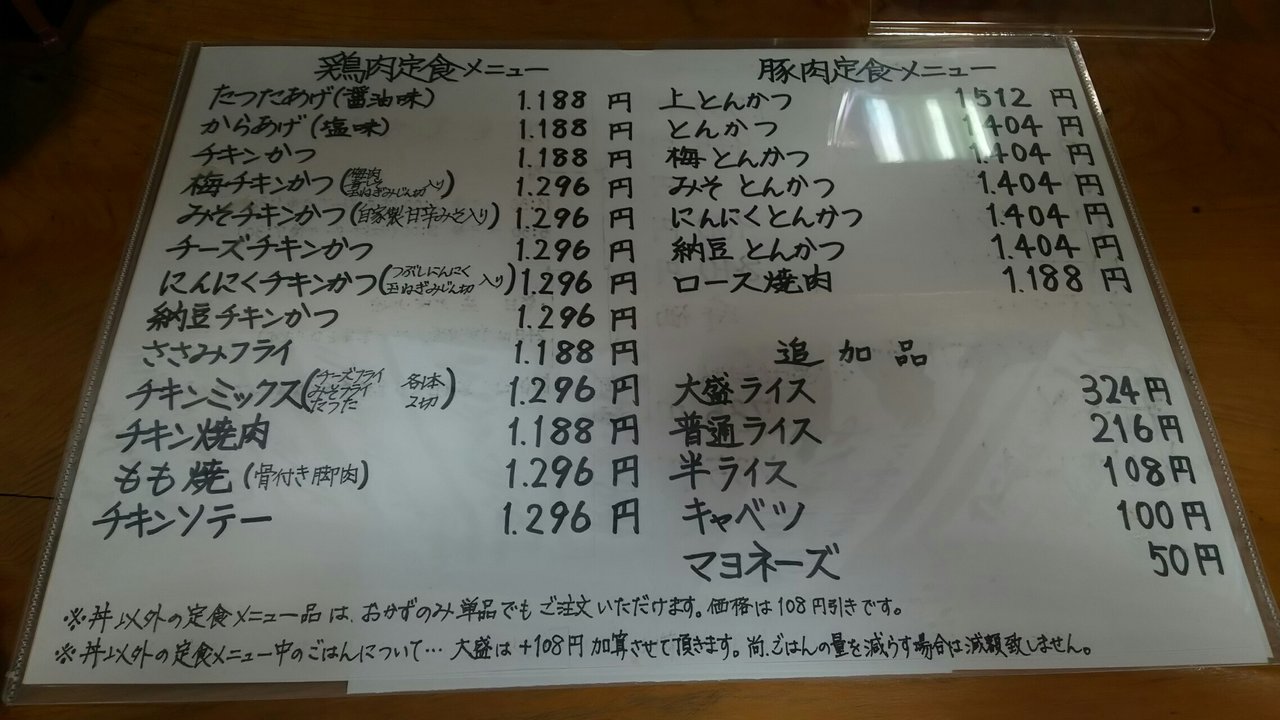 鶏肉定食メニュー
たつたあげ(醤油味) 1.188円
からあげ(塩味) 1.188円
チキンかつ 1.188円
梅チキンかつ(梅肉 玉ねぎみじん切 入り) 1.296円
みそチキンかつ(自家製甘辛みそ入り) 1.296円
チーズチキンかつ 1.296円
にんにくチキンかつ(つぶしにんにく 玉ねぎみじん切 入り) 1.296円
納豆チキンかつ 1.296円
ささみフライ 1.188円
チキンミックス(チーズフライ みそフライ 各1本 たつた 2切) 1.296円
チキン焼肉 1.188円
もも焼(骨付き脚肉) 1.296円
チキンソテー 1.296円
豚肉定食メニュー
上とんかつ 1512円
とんかつ 1.404円
梅とんかつ 1.404円
みそとんかつ 1.404円
にんにくとんかつ 1.404円
納豆とんかつ 1.404円
ロース焼肉 1.188円
追加品
大盛ライス 324円
普通ライス 216円
半ライス 108円
キャベツ 100円
マヨネーズ 50円
※丼以外の定食メニュー品は、おかずのみ単品でもご注文いただけます。価格は108円引きです。
※丼以外の定食メニュー中のごはんについて…大盛は+108円加算させて頂きます。尚、ごはんの量を減らす場合は減額致しません。